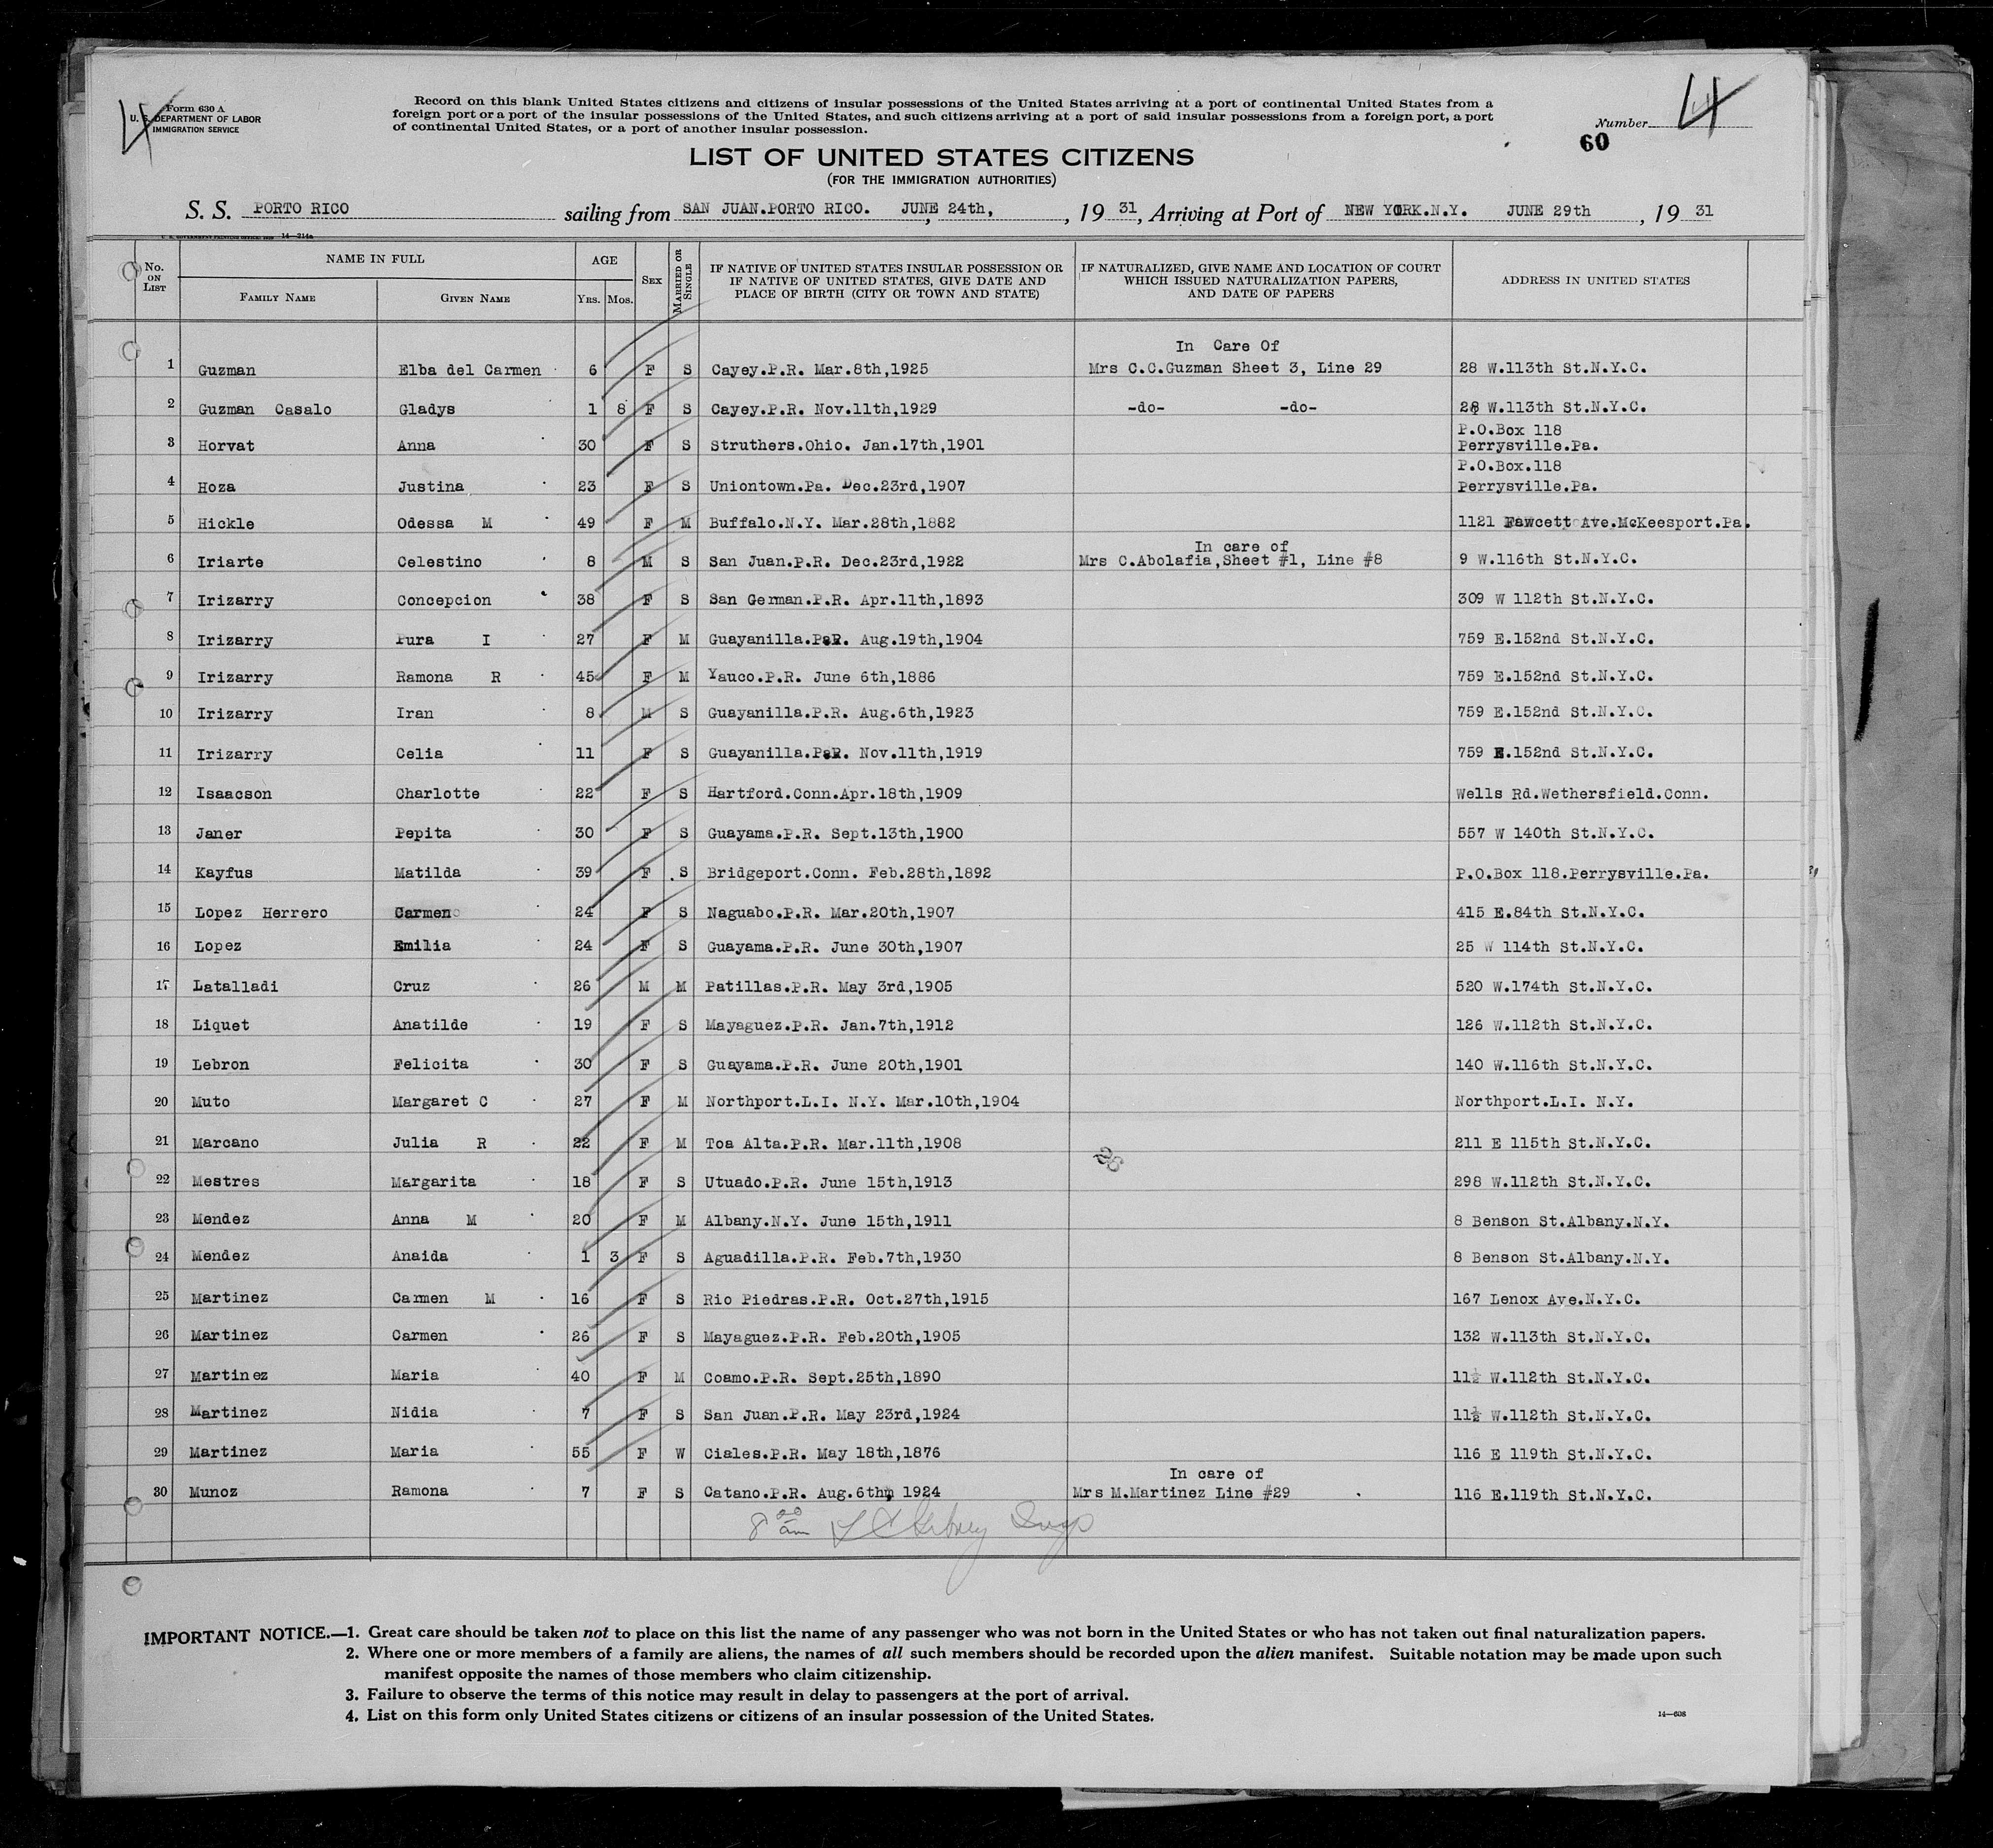 Form 630 A
U. S. DEPARTMENT OF LABOR
IMMIGRATION SERVICE
4
Record on this blank United States citizens and citizens of insular possessions of the United States arriving at a port of continental United States from a
foreign port or a port of the insular possessions of the United States, and such citizens arriving at a port of said insular possessions from a foreign port, a port
of continental United States, or a port of another insular possession.
Number 4
60
LIST OF UNITED STATES CITIZENS
(FOR THE IMMIGRATION AUTHORITIES)
S. S. PORTO RICO sailing from SAN JUAN.PORTO RICO. JUNE 24th, , 19 31, Arriving at Port of NEW YORK.N.Y. JUNE 29th , 19 31
14—214a
No. ON LIST NAME IN FULL AGE SEX MARRIED OR SINGLE IF NATIVE OF UNITED STATES INSULAR POSSESSION OR IF NATIVE OF UNITED STATES, GIVE DATE AND PLACE OF BIRTH (CITY OR TOWN AND STATE) IF NATURALIZED, GIVE NAME AND LOCATION OF COURT WHICH ISSUED NATURALIZATION PAPERS, AND DATE OF PAPERS ADDRESS IN UNITED STATES
FAMILY NAME GIVEN NAME YRS. MOS.
In Care Of
1 Guzman Elba del Carmen 6 F S Cayey.P.R. Mar.8th,1925 Mrs C.C.Guzman Sheet 3, Line 29 28 W.113th St.N.Y.C.
2 Guzman Casalo Gladys 1 8 F S Cayey.P.R. Nov.11th,1929 -do- -do- 28 W.113th St.N.Y.C.
P.O.Box 118
3 Horvat Anna 30 F S Struthers.Ohio. Jan.17th,1901 Perrysville.Pa.
P.O.Box.118
4 Hoza Justina 23 F S Uniontown.Pa. Dec.23rd,1907 Perrysville.Pa.
5 Hickle Odessa M 49 F M Buffalo.N.Y. Mar.28th,1882 1121 Fawcett Ave.McKeesport.Pa.
In care of
6 Iriarte Celestino 8 M S San Juan.P.R. Dec.23rd,1922 Mrs C.Abolafia,Sheet #1, Line #8 9 W.116th St.N.Y.C.
7 Irizarry Concepcion 38 F S San German.P.R. Apr.11th,1893 309 W 112th St.N.Y.C.
8 Irizarry Pura I 27 F M Guayanilla.P.R. Aug.19th,1904 759 E.152nd St.N.Y.C.
9 Irizarry Ramona R 45 F M Yauco.P.R. June 6th,1886 759 E.152nd St.N.Y.C.
10 Irizarry Iran 8 M S Guayanilla.P.R. Aug.6th,1923 759 E.152nd St.N.Y.C.
11 Irizarry Celia 11 F S Guayanilla.P.R. Nov.11th,1919 759 E.152nd St.N.Y.C.
12 Isaacson Charlotte 22 F S Hartford.Conn.Apr.18th,1909 Wells Rd.Wethersfield.Conn.
13 Janer Pepita 30 F S Guayama.P.R. Sept.13th,1900 557 W 140th St.N.Y.C.
14 Kayfus Matilda 39 F S Bridgeport.Conn. Feb.28th,1892 P.O.Box 118.Perrysville.Pa.
15 Lopez Herrero Carmen 24 F S Naguabo.P.R. Mar.20th,1907 415 E.84th St.N.Y.C.
16 Lopez Emilia 24 F S Guayama.P.R. June 30th,1907 25 W 114th St.N.Y.C.
17 Latalladi Cruz 26 M M Patillas.P.R. May 3rd,1905 520 W.174th St.N.Y.C.
18 Liquet Anatilde 19 F S Mayaguez.P.R. Jan.7th,1912 126 W.112th St.N.Y.C.
19 Lebron Felicita 30 F S Guayama.P.R. June 20th,1901 140 W.116th St.N.Y.C.
20 Muto Margaret C 27 F M Northport.L.I. N.Y. Mar.10th,1904 Northport.L.I. N.Y.
21 Marcano Julia R 22 F M Toa Alta.P.R. Mar.11th,1908 211 E 115th St.N.Y.C.
22 Mestres Margarita 18 F S Utuado.P.R. June 15th,1913 298 W.112th St.N.Y.C.
23 Mendez Anna M 20 F M Albany.N.Y. June 15th,1911 8 Benson St.Albany.N.Y.
24 Mendez Anaida 1 3 F S Aguadilla.P.R. Feb.7th,1930 8 Benson St.Albany.N.Y.
25 Martinez Carmen M 16 F S Rio Piedras.P.R. Oct.27th,1915 167 Lenox Ave.N.Y.C.
26 Martinez Carmen 26 F S Mayaguez.P.R. Feb.20th,1905 132 W.113th St.N.Y.C.
27 Martinez Maria 40 F M Coamo.P.R. Sept.25th,1890 11½ W.112th St.N.Y.C.
28 Martinez Nidia 7 F S San Juan.P.R. May 23rd,1924 11½ W.112th St.N.Y.C.
29 Martinez Maria 55 F W Ciales.P.R. May 18th,1876 116 E 119th St.N.Y.C.
In care of
30 Munoz Ramona 7 F S Catano.P.R. Aug.6th, 1924 Mrs M.Martinez Line #29 116 E.119th St.N.Y.C.
8 00 am
IMPORTANT NOTICE.—1. Great care should be taken not to place on this list the name of any passenger who was not born in the United States or who has not taken out final naturalization papers.
2. Where one or more members of a family are aliens, the names of all such members should be recorded upon the alien manifest. Suitable notation may be made upon such
manifest opposite the names of those members who claim citizenship.
3. Failure to observe the terms of this notice may result in delay to passengers at the port of arrival.
4. List on this form only United States citizens or citizens of an insular possession of the United States.
14—608